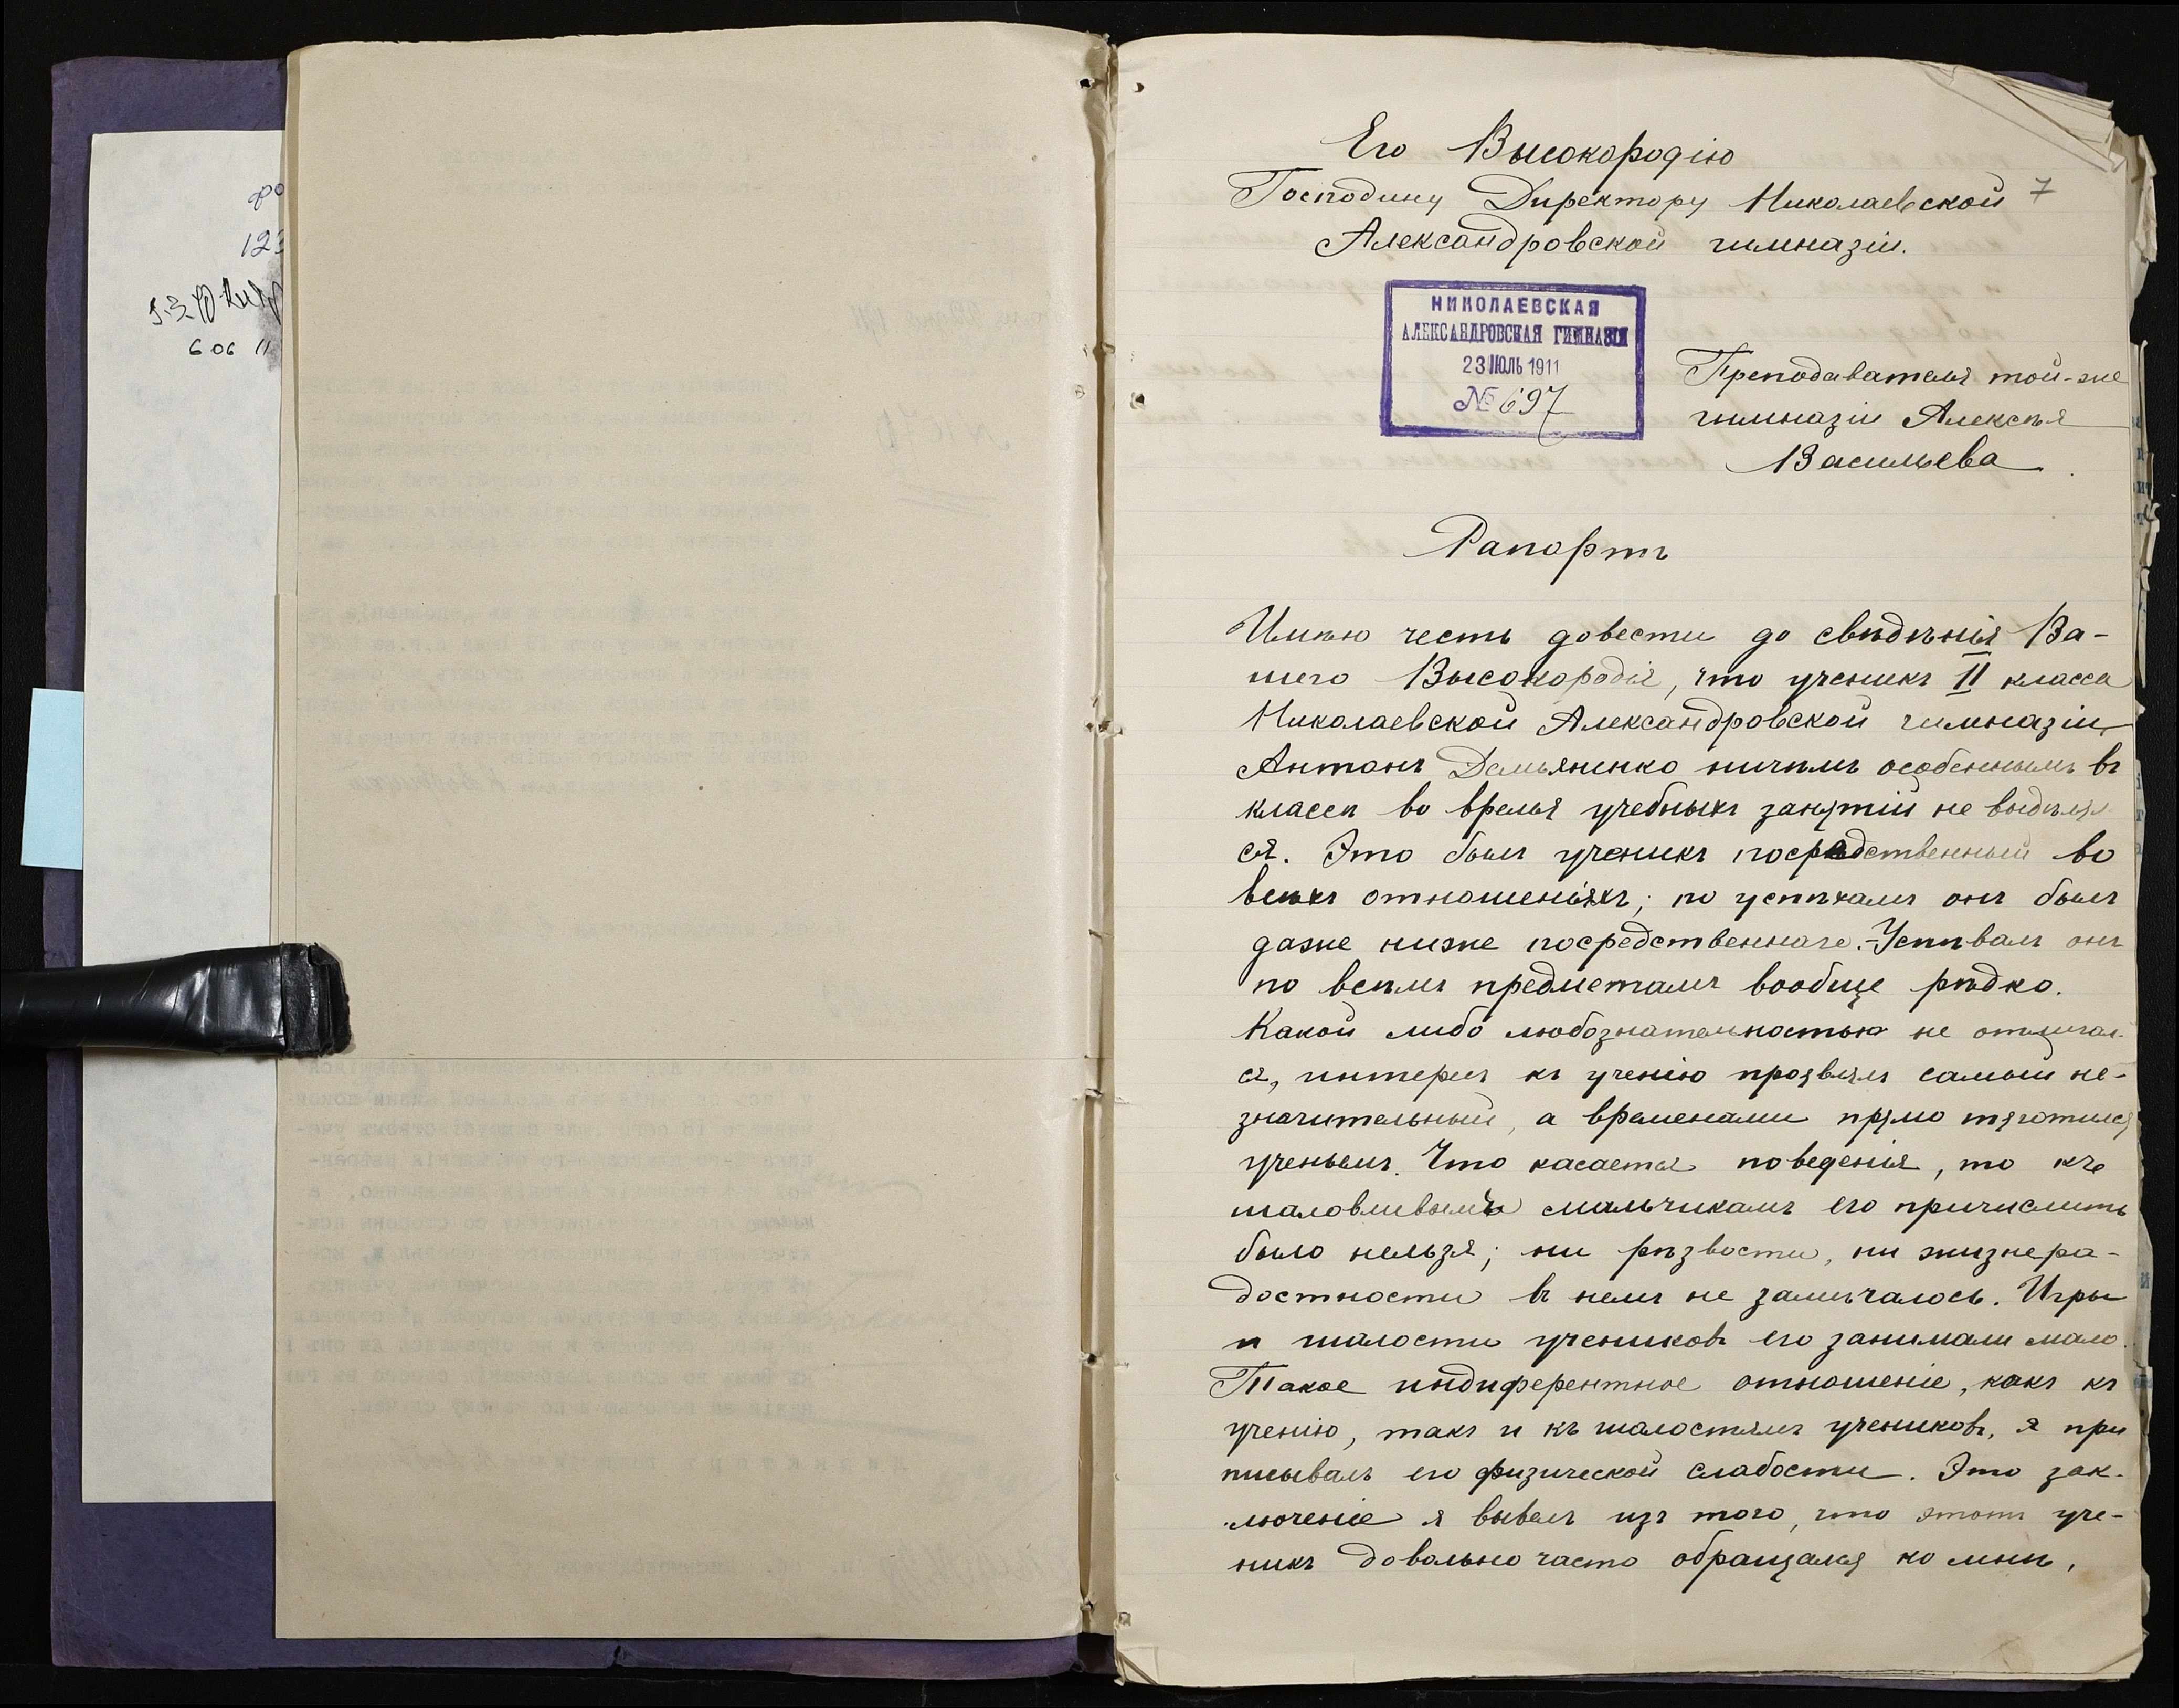 123
6 06 11
Его Высокородію
Господину Директору Николаевской 7
Александровской гимназіи.
НИКОЛАЕВСКАЯ
АЛЕКСАНДРОВСКАЯ ГИМНАЗІЯ
23 ІЮЛЬ 1911
№ 697
Преподавателя той-же
гимназіи Алексѣя
Васильева
Рапортъ
Имѣю честь довести до свѣдѣнія Ва-
шего Высокородія, что ученикъ II класса
Николаевской Александровской гимназіи
Антонъ Демьяненко ничѣмъ особеннымъ въ
классѣ во время учебныхъ занятій не выдѣлял
ся. Это былъ ученикъ посредственный во
всѣхъ отношеніяхъ; по успѣхамъ онъ былъ
даже ниже посредственнаго.-Успѣвалъ онъ
по всѣмъ предметамъ вообще рѣдко.
Какой либо любознательностью не отличал-
ся, интересъ къ ученію проявлялъ самый не-
значительный, а временами прямо тяготился
ученьемъ. Что касается поведенія, то къ
шаловливымъ мальчикамъ его причислить
было нельзя; ни рѣзвости, ни жизнера-
достности въ немъ не замѣчалось. Игры
и шалости учениковъ его занимали мало.
Такое индиферентное отношеніе, какъ къ
ученію, такъ и къ шалостямъ учениковъ, я при
писывалъ его физической слабости. Это зак-
люченіе я вывелъ изъ того, что этотъ уче-
никъ довольно часто обращался ко мнѣ,